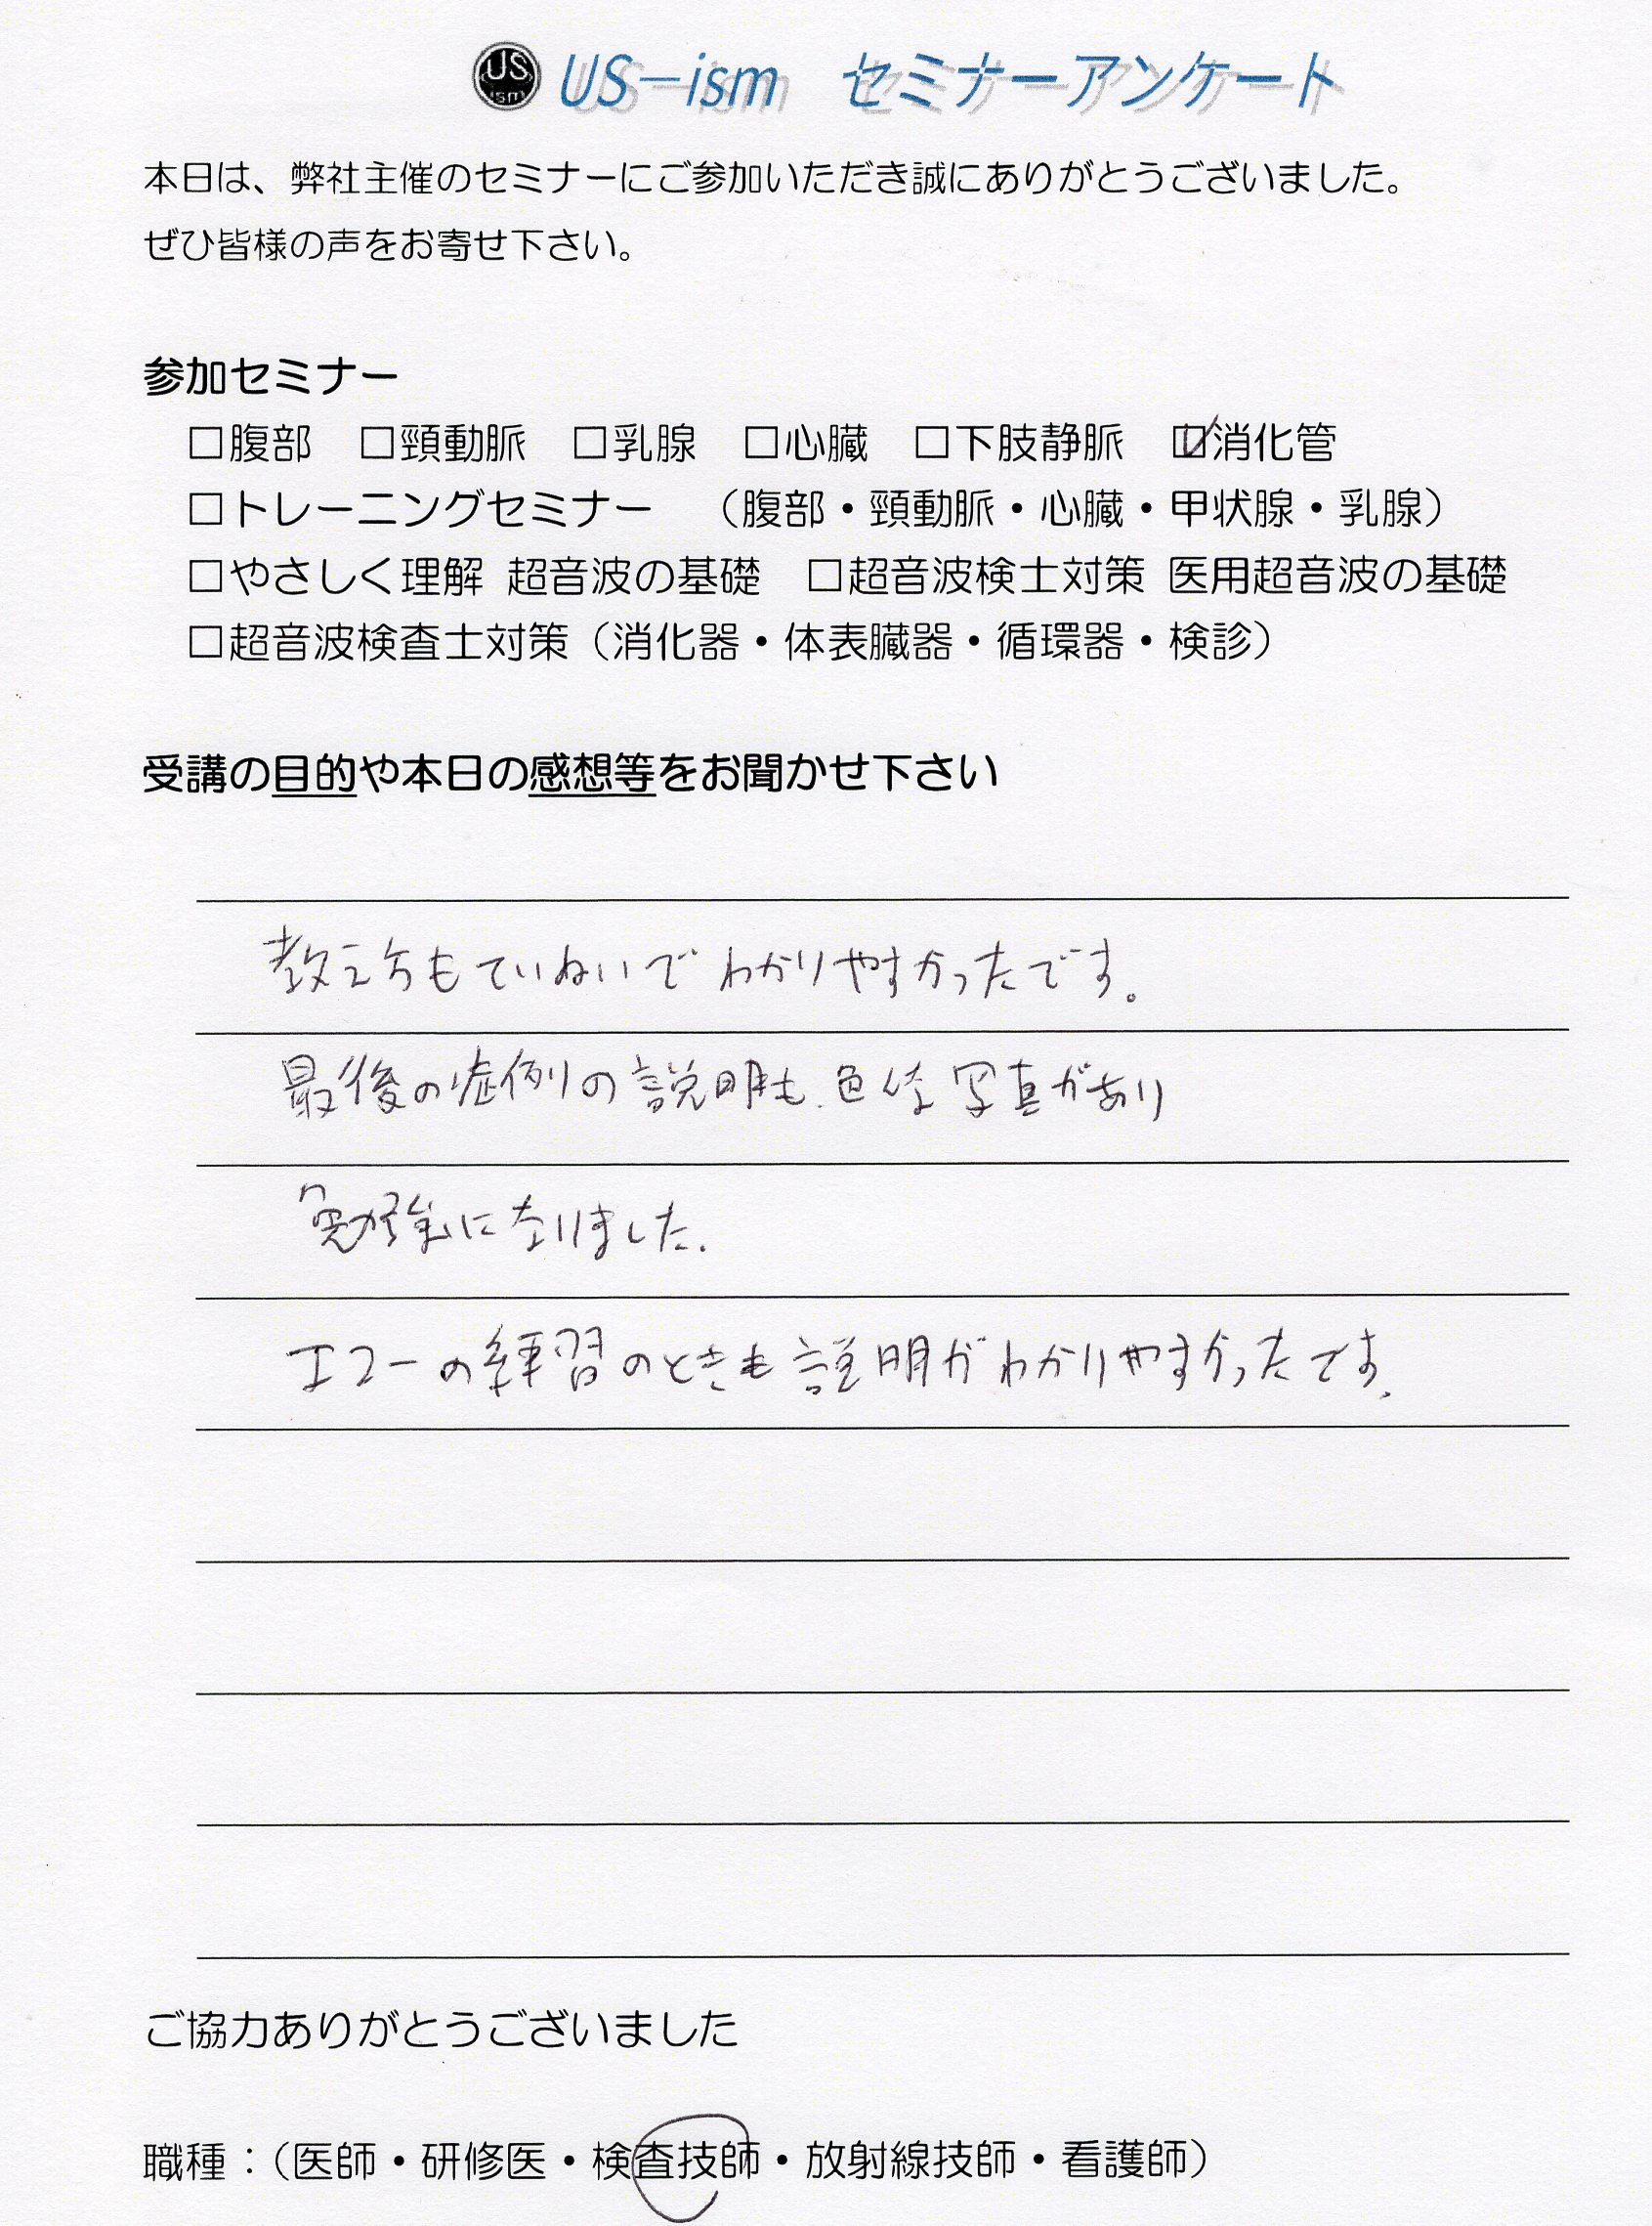 US ism US-ism セミナーアンケート
本日は、弊社主催のセミナーにご参加いただき誠にありがとうございました。
ぜひ皆様の声をお寄せ下さい。
参加セミナー
□腹部 □頸動脈 □乳腺 □心臓 □下肢静脈 ☑消化管
□トレーニングセミナー （腹部・頸動脈・心臓・甲状腺・乳腺）
□やさしく理解 超音波の基礎 □超音波検士対策 医用超音波の基礎
□超音波検査士対策（消化器・体表臓器・循環器・検診）
受講の目的や本日の感想等をお聞かせ下さい
教え方もていねいでわかりやすかったです。
最後の症例の説明も、色々な写真があり
勉強になりました。
エコーの練習のときも説明がわかりやすかったです。
ご協力ありがとうございました
職種：（医師・研修医・検査技師・放射線技師・看護師）